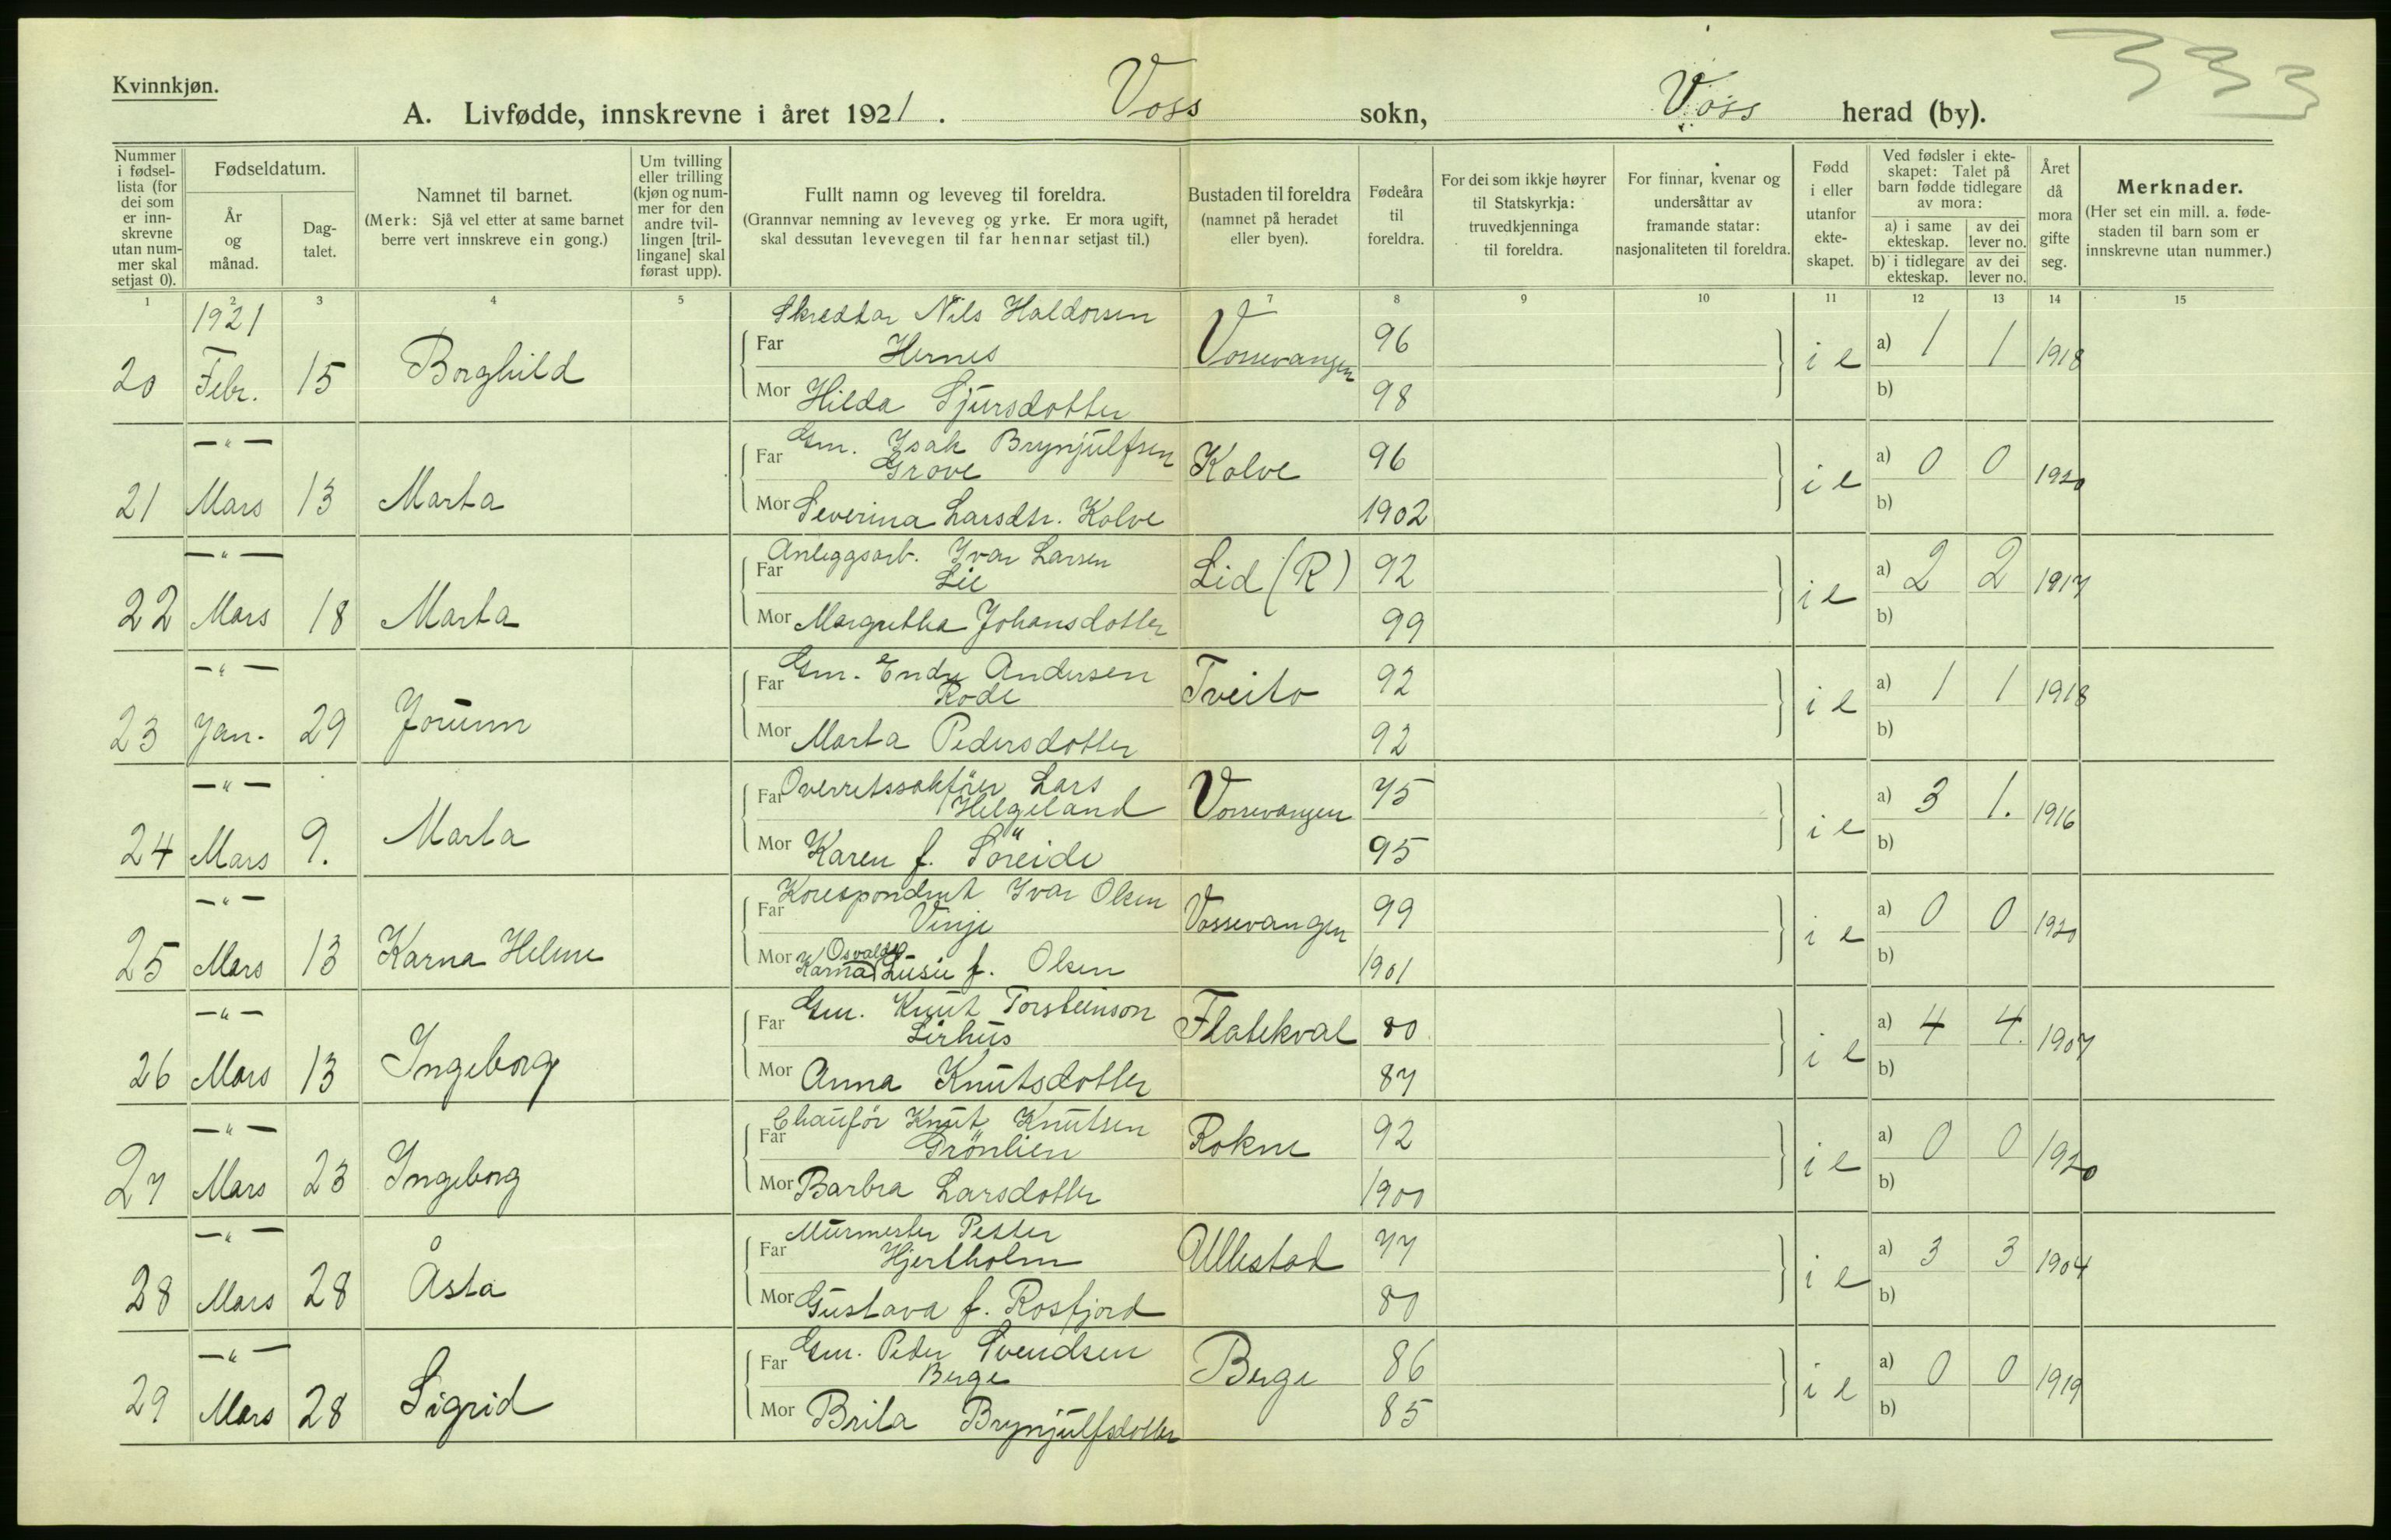 333
Kvinnkjøn.
A. Livfødde, innskrevne i året 1921. Voss sokn, Voss herad (by).
Nummer i fødsel-lista (for dei som er inn-skrevne utan num-mer skal setjast 0).
Fødseldatum.
År og månad.
Dag-talet.
Namnet til barnet.
(Merk: Sjå vel etter at same barnet berre vert innskreve ein gong.)
Um tvilling eller trilling (kjøn og num-mer for den andre tvil-lingen [tril-lingane] skal førast upp).
Fullt namn og leveveg til foreldra.
(Grannvar nemning av leveveg og yrke. Er mora ugift, skal dessutan levevegen til far hennar setjast til.)
Bustaden til foreldra (namnet på heradet eller byen).
Fødeåra til foreldra.
For dei som ikkje høyrer til Statskyrkja: truvedkjenninga til foreldra.
For finnar, kvenar og undersåttar av framande statar: nasjonaliteten til foreldra.
Fødd i eller utanfor ekte-skapet.
Ved fødsler i ekte-skapet: Talet på barn fødde tidlegare av mora:
a) i same ekteskap. av dei lever no.
b) i tidlegare ekteskap. av dei lever no.
Året då mora gifte seg.
Merknader.
(Her set ein mill. a. føde-staden til barn som er innskrevne utan nummer.)
1 2 3 4 5 7 8 9 10 11 12 13 14 15
1921 Skreddar Nils Haldorsen
20 Febr. 15 Borghild Far Hernes Vossevangen 96 i e a) 1 1 1918
Mor Hilda Sjursdotter 98 b)
—"— Gm. Isak Brynjulfsen
21 Mars 13 Marta Far Grove Kolve 96 i e a) 0 0 1920
Mor Severina Larsdtr. Kolve 1902 b)
—"— Anleggsarb. Ivar Larsen
22 Mars 18 Marta Far Lie Lid (R) 92 i e a) 2 2 1917
Mor Margretha Johansdotter 99 b)
—"— Gm. Endre Andersen
23 Jan. 29 Jorunn Far Rode Tveito 92 i e a) 1 1 1918
Mor Marta Pedersdotter 92 b)
—"— Overretssakförer Lars
24 Mars 9. Marta Far Helgeland Vossevangen 75 i e a) 3 1. 1916
Mor Karen f. Söreide 95 b)
—"— Korespondent Ivar Olsen
25 Mars 13 Karna Helene Far Vinje Vossevangen 99 i e a) 0 0 1920
Mor Karna Lusie f. Olsen 1901 b)
—"— Gm. Knut Torsteinson
26 Mars 13 Ingeborg Far Lirhus Flatekval 80 i e a) 4 4. 1907
Mor Anna Knutsdotter 87 b)
—"— Chauför Knut Knutsen
27 Mars 23 Ingeborg Far Grönlien Rokne 92 i e a) 0 0 1920
Mor Barbra Larsdotter 1900 b)
—"— Murmester Petter
28 Mars 28 Åsta Far Hjertholm Ullestad 77 i e a) 3 3 1904
Mor Gustava f. Rosfjord 80 b)
—"— Gm. Peder Svendsen
29 Mars 28 Sigrid Far Berge Berge 86 i e a) 0 0 1919
Mor Brita Brynjulfsdotter 85 b)